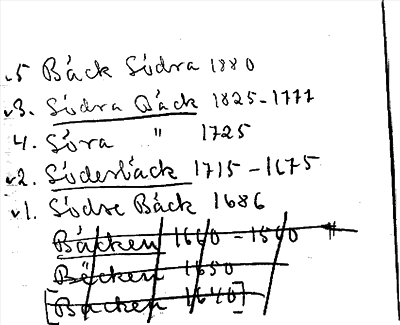 v.5 Bäck Södra 1880
v3. Södra Bäck 1825-1777
4. Söra " 1725
v2. Söderbäck 1715-1675
v1. Södre Bäck 1686
Bäcken 1660-1560
Bäcken 1650
[Backen 1640]